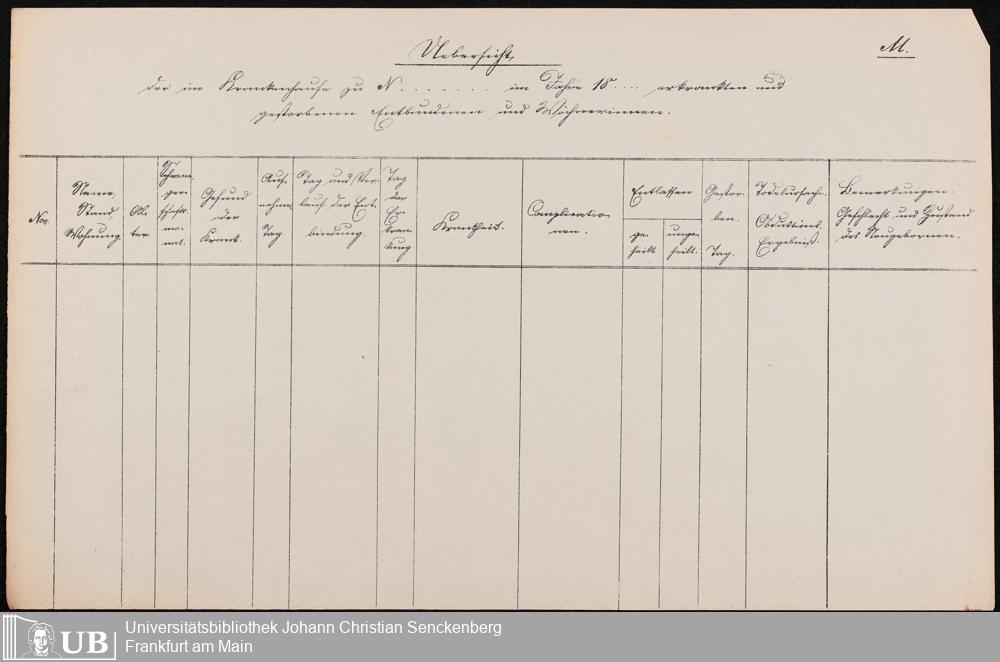 Uebersicht,
M.
der im Krankenhause zu N. . . . . . . im Jahre 18 . . . erkrankten und
gestorbenen Entbundenen und Wöchnerinnen.
Nro.
Name,
Stand,
Wohnung.
Al-
ter.
Schwan-
ger-
schafts-
mo-
nat.
Gesund
oder
Krank.
Auf-
nahme
Tag
Tag und Ver-
lauf der Ent-
bindung.
Tag
der
Er-
kran-
kung
Krankheit.
Complicatio-
nen.
Entlassen
ge-
heilt.
unge-
heilt.
Gestor-
ben.
Tag.
Todesursache.
Obductions-
Ergebniß.
Bemerkungen.
Geschlecht und Zustand
des Neugebornen.
UB
Universitätsbibliothek Johann Christian Senckenberg
Frankfurt am Main